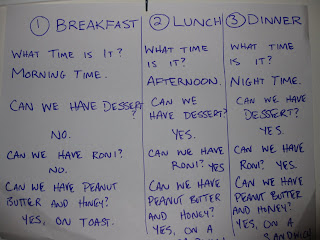 ① BREAKFAST
WHAT TIME IS IT?
MORNING TIME.
CAN WE HAVE DESSERT?
NO.
CAN WE HAVE RONI?
NO.
CAN WE HAVE PEANUT
BUTTER AND HONEY?
YES, ON TOAST.
② LUNCH
WHAT TIME
IS IT?
AFTERNOON.
CAN WE
HAVE DESSERT?
YES.
CAN WE HAVE
RONI? YES
CAN WE HAVE
PEANUT BUTTER
AND HONEY?
YES, ON A
③ DINNER
WHAT TIME
IS IT?
NIGHT TIME.
CAN WE HAVE
DESSERT?
YES.
CAN WE HAVE
RONI? YES.
CAN WE HAVE
PEANUT BUTTER
AND HONEY?
YES, ON A
SANDWICH